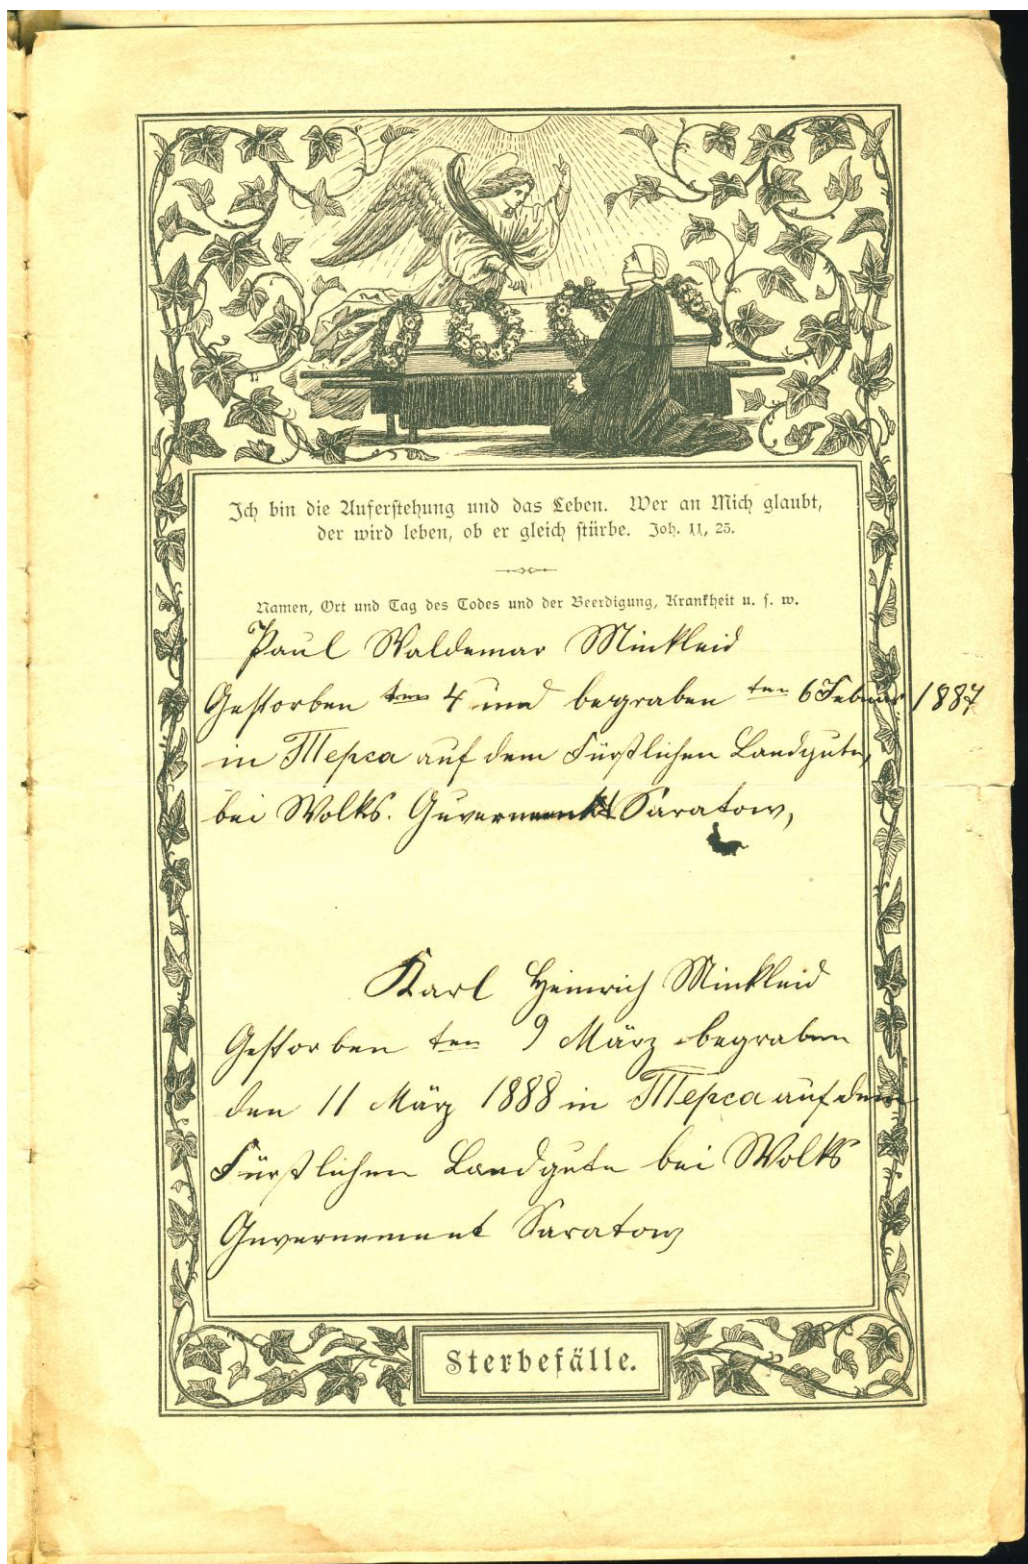 Ich bin die Auferstehung und das Leben. Wer an Mich glaubt,
der wird leben, ob er gleich stürbe. Joh. 11, 25.
Namen, Ort und Tag des Todes und der Beerdigung, Krankheit u. s. w.
Paul Waldemar Minkleid
Gestorben ten 4 und begraben ten 6 Februar 1887
in Терса auf dem Fürstlichen Landgute,
bei Wolks. Guvernement Saratow,
Karl Heinrich Minkleid
Gestorben ten 9 März begraben
den 11 März 1888 in Терса auf dem
Fürstlichen Landgute bei Wolks
Guvernement Saratow
Sterbefälle.